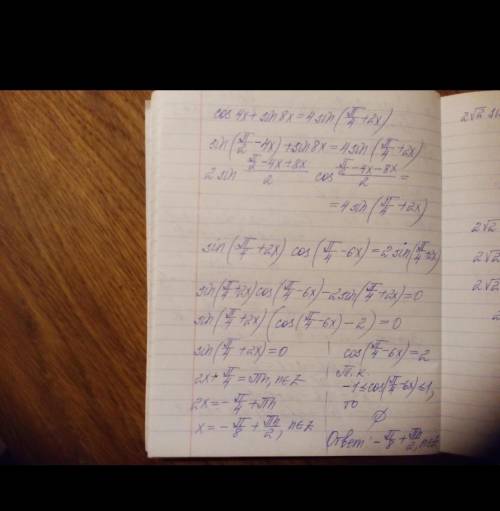 cos4x+sin8x=4sin(π/4+2x)
sin(π/2-4x)+sin8x=4sin(π/4+2x)
2sin (π/2-4x+8x)/2 cos (π/2-4x-8x)/2 =
=4sin(π/4+2x)
sin(π/4+2x) cos(π/4-6x)=2sin(π/4+2x)
sin(π/4+2x)cos(π/4-6x)-2sin(π/4+2x)=0
sin(π/4+2x)(cos(π/4-6x)-2)=0
sin(π/4+2x)=0
2x+π/4=πn, n∈Z
2x=-π/4+πn
x=-π/8+πn/2, n∈Z
cos(π/4-6x)=2
т.к.
-1≤cos(π/4-6x)≤1,
то
∅
Ответ: -π/8+πn/2, n∈Z
2√2
2√2
2√2
2√2